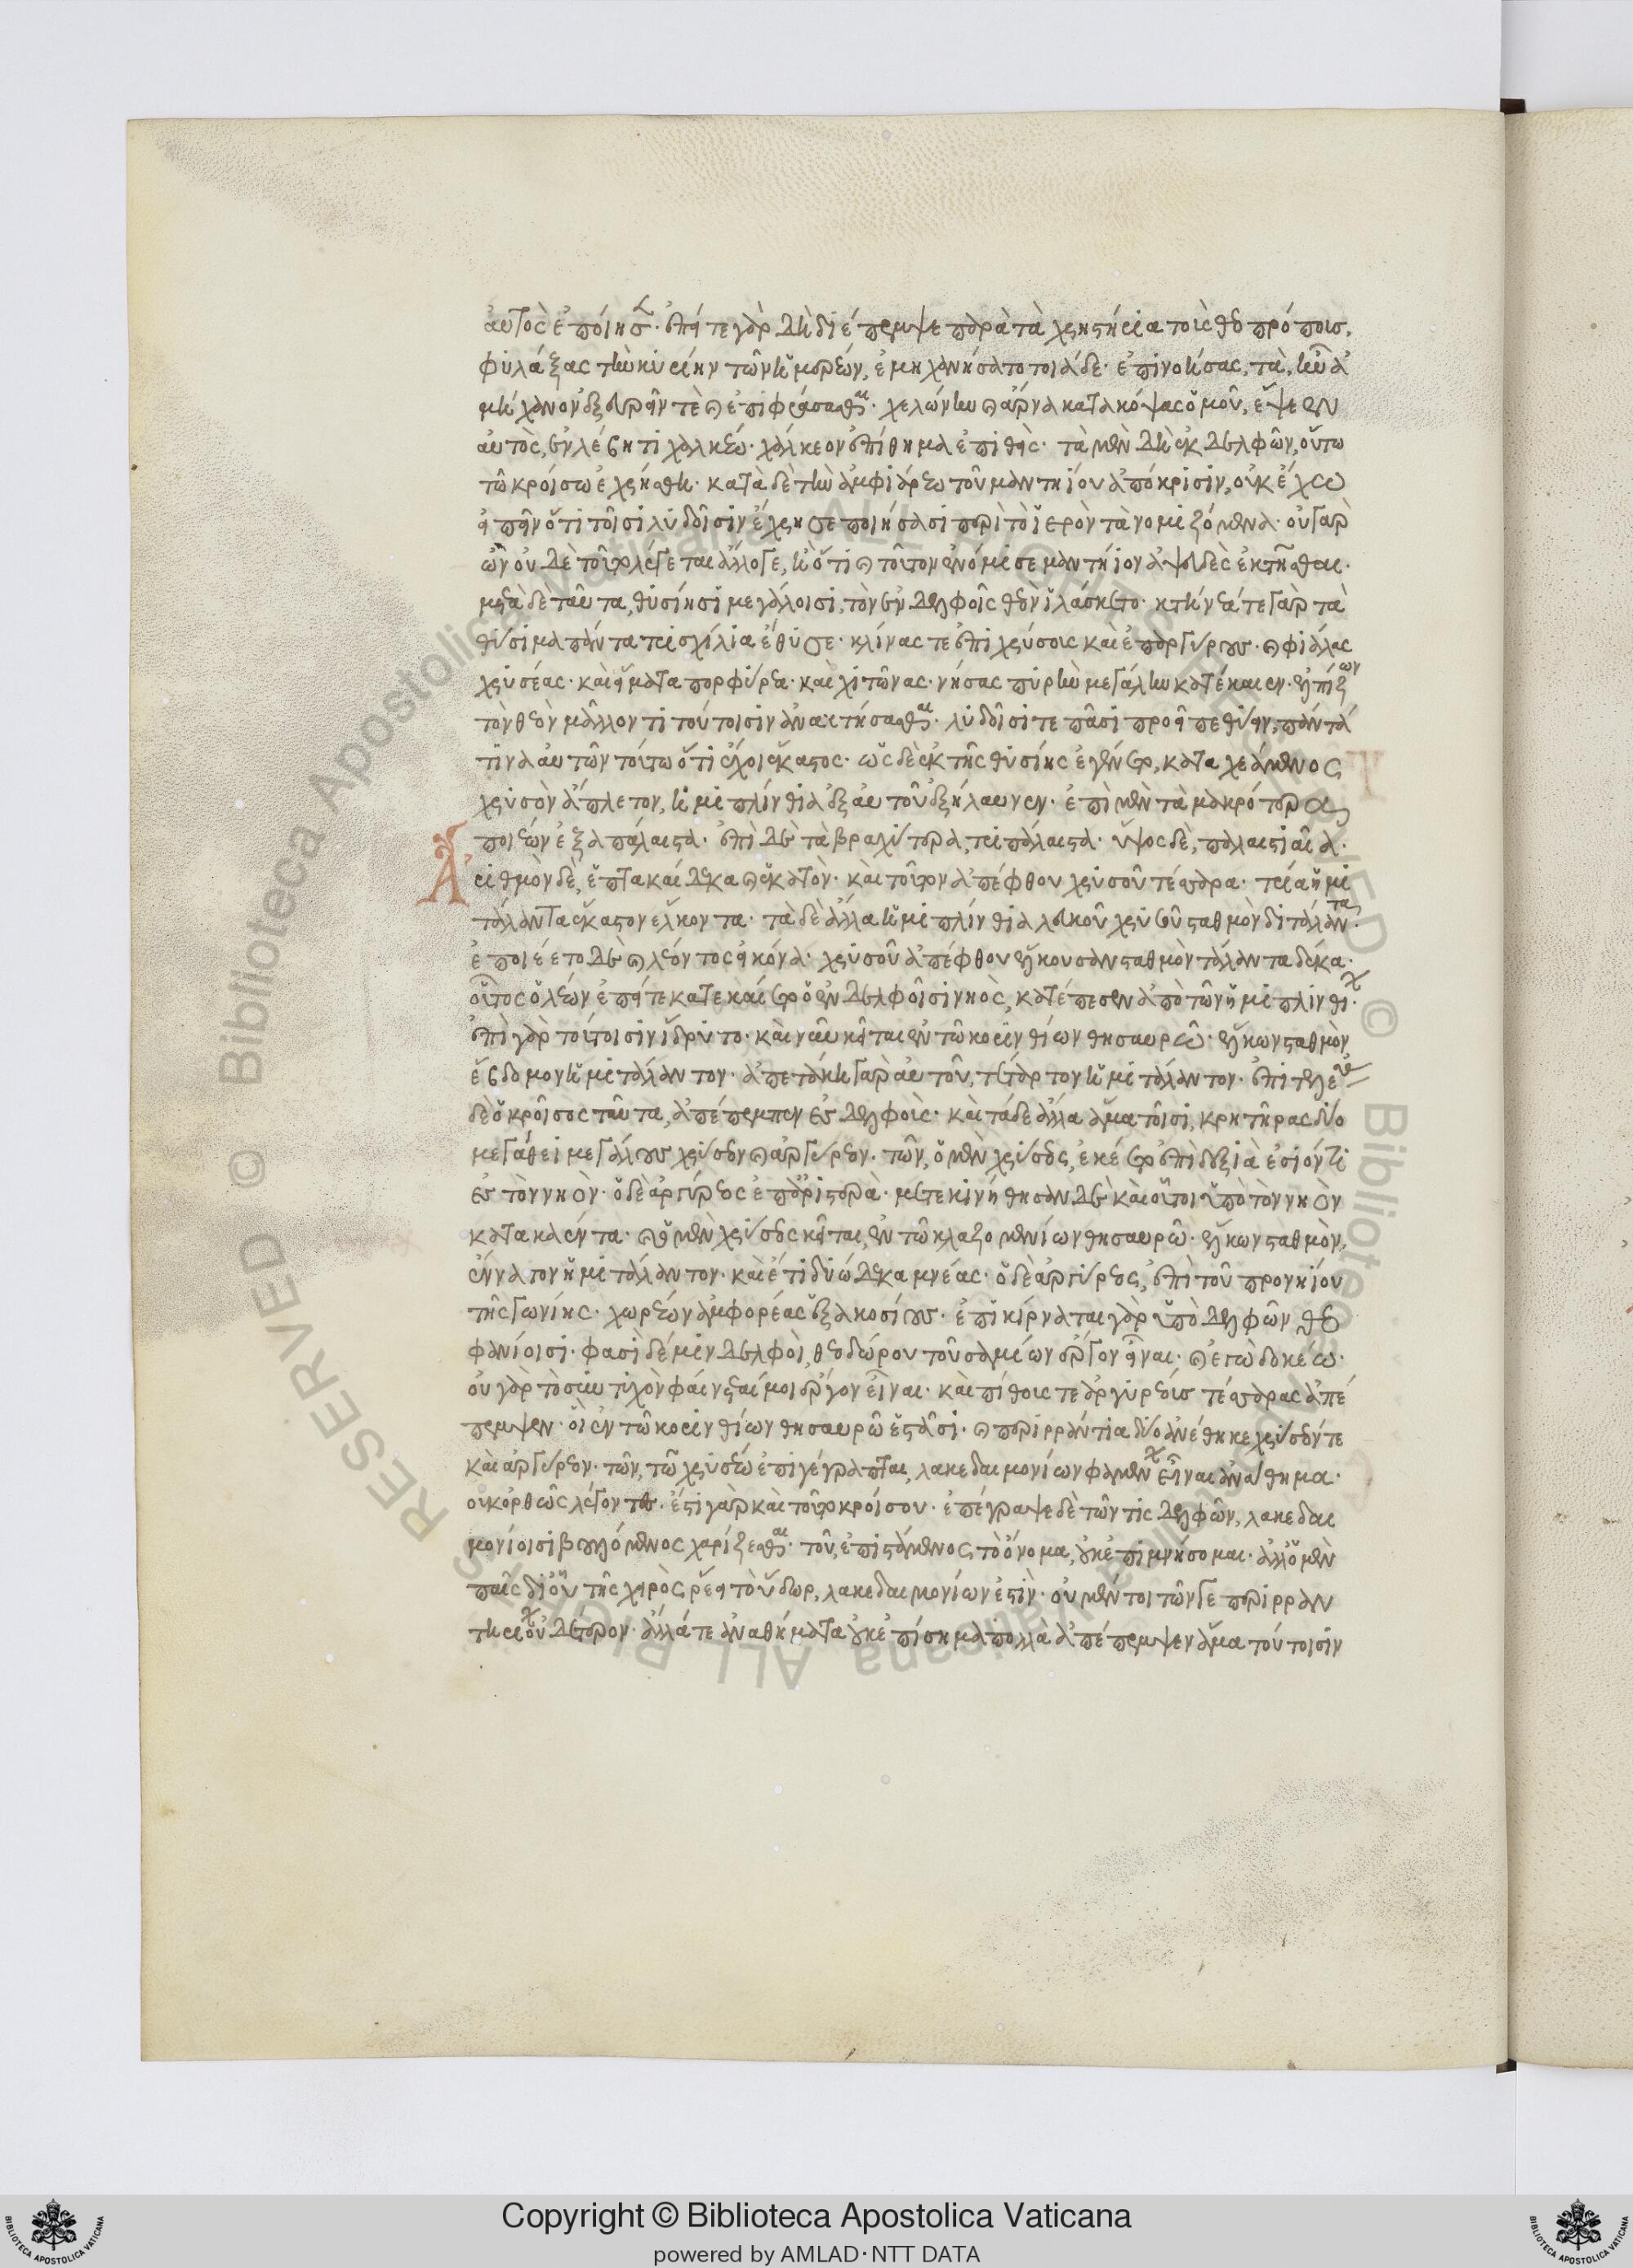 αὐτὸς ἐποίησε. ἐπεί τε γὰρ δὴ διέπεμψε παρὰ τὰ χρηστήρια τοὺς θεοπρόπους,
φυλάξας τὴν κυρίην τῶν ἡμερέων, ἐμηχανήσατο τοιάδε. ἐπινοήσας, τὰ, ἦν ἀ
μήχανον ἐξευρεῖν τὲ καὶ ἐπιφράσασθαι. χελώνην καὶ ἄρνα κατακόψας ὁμοῦ, ἕψεεν
αὐτὸς, ἐν λέβητι χαλκέω. χάλκεον ἐπίθημα ἐπιθείς. τὰ μὲν δὴ ἐκ δελφῶν, οὕτω
τῶ κροίσω ἐχρήσθη. κατὰ δὲ τὴν ἀμφιάρεω τοῦ μαντηίου ἀπόκρισιν, οὐκ ἔχω
εἰπεῖν ὅτι τοῖσι λυδοῖσιν ἔχρησε ποιήσασι περὶ τὸ ἱερὸν τὰ νομιζόμενα. οὐ γὰρ
ὦν οὐδὲ τοῦτο λέγεται ἄλλο γε, ἢ ὅτι καὶ τοῦτον ἐνόμισε μαντήιον ἀψευδὲς ἐκτῆσθαι.
μετὰ δὲ ταῦτα, θυσίησι μεγάλοισι, τὸν ἐν δελφοῖς θεὸν ἱλάσκετο. κτήνεά τε γὰρ τὰ
θύσιμα πάντα τρισχίλια ἔθυσε. κλίνας τε ἐπιχρύσους καὶ ἐπαργύρους. καὶ φιάλας
χρυσέας. καὶ εἵματα πορφύρεα. καὶ χιτῶνας. νήσας πυρὴν μεγάλην κατέκαιεν. ἐλπίζων
τὸν θεὸν μᾶλλόν τι τούτοισιν ἀνακτήσασθαι. λυδοῖσί τε πᾶσι προεῖπε θύειν, πάντά
τινα αὐτῶν τούτω ὅτι ἔχοι ἕκαστος. ὡς δὲ ἐκ τῆς θυσίης ἐγένετο, καταχεάμενος
χρυσὸν ἄπλετον, ἡμιπλίνθια ἐξ αὐτοῦ ἐξήλαυνεν. ἐπὶ μὲν τὰ μακρότερα
ποιέων ἑξαπάλαιστα. ἐπὶ δὲ τὰ βραχύτερα, τριπάλαιστα. ὕψος δὲ, παλαιστιαῖα.
Ἀριθμὸν δὲ, ἑπτακαίδεκα καὶ ἑκατόν. καὶ τούτων ἀπέφθου χρυσοῦ τέσσερα. τρία ἡμι
τάλαντα ἕκαστον ἕλκοντα. τὰ δὲ ἄλλα ἡμιπλίνθια λευκοῦ χρυσοῦ σταθμὸν διτάλαντα.
ἐποιέετο δὲ καὶ λέοντος εἰκόνα. χρυσοῦ ἀπέφθου ἕλκουσαν σταθμὸν τάλαντα δέκα.
οὗτος ὁ λέων ἐπεί τε κατεκαίετο ὁ ἐν δελφοῖσι νηὸς, κατέπεσεν ἀπὸ τῶν ἡμιπλινθίων.
ἐπὶ γὰρ τούτοισιν ἵδρυτο. καὶ νῦν κεῖται ἐν τῶ κορινθίων θησαυρῶ. ἕλκων σταθμὸν
ἕβδομον ἡμιτάλαντον. ἀπετάκη γὰρ αὐτοῦ, τέταρτον ἡμιτάλαντον. ἐπιτελέσας
δὲ ὁ κροῖσος ταῦτα, ἀπέπεμπεν ἐς δελφούς. καὶ τάδε ἄλλα ἅμα τοῖσι, κρητῆρας δύο
μεγάθεϊ μεγάλους χρύσεον καὶ ἀργύρεον. τῶν, ὁ μὲν χρύσεος, ἐκέετο ἐπὶ δεξιὰ ἐσιόντι
ἐς τὸν νηὸν. ὁ δὲ ἀργύρεος ἐπ' ἀριστερά. μετεκινήθησαν δὲ καὶ οὗτοι ὑπὸ τὸν νηὸν
κατακαέντα. καὶ ὁ μὲν χρύσεος κεῖται, ἐν τῶ κλαζομενίων θησαυρῶ. ἕλκων σταθμὸν,
εἴνατον ἡμιτάλαντον. καὶ ἔτι δυώδεκα μνέας. ὁ δὲ ἀργύρεος, ἐπὶ τοῦ προνηίου
τῆς γωνίης. χωρέων ἀμφορέας ἑξακοσίους. ἐπικίρναται γὰρ ὑπὸ δελφῶν θεο
φανίοισι. φασὶ δέ μιν δελφοὶ, θεοδώρου τοῦ σαμίων ἔργον εἶναι. καὶ ἐγὼ δοκέω.
οὐ γὰρ τὸ συντυχὸν φαίνεταί μοι ἔργον εἶναι. καὶ πίθους τε ἀργυρέους τέσσερας ἀπέ
πεμψεν. οἳ ἐν τῶ κορινθίων θησαυρῶ ἑστᾶσι. καὶ περιρραντήρια δύο ἀνέθηκε χρύσεόν τε
καὶ ἀργύρεον. τῶν, τῶ χρυσέω ἐπιγέγραπται, λακεδαιμονίων φαμένων εἶναι ἀνάθημα.
οὐκ ὀρθῶς λέγοντες. ἔστι γὰρ καὶ τοῦτο κροίσου. ἐπέγραψε δὲ τῶν τις δελφῶν, λακεδαι
μονίοισι βουλόμενος χαρίζεσθαι. τοῦ, ἐπιστάμενος τὸ ὄνομα, οὐκ ἐπιμνήσομαι. ἀλλ' ὁ μὲν
παῖς δι' οὗ τῆς χειρὸς ῥέει τὸ ὕδωρ, λακεδαιμονίων ἐστίν. οὐ μέντοι τῶν γε περιρραν
τηρίων οὐδέτερον. ἄλλά τε ἀναθήματα οὐκ ἐπίσημα πολλὰ ἀπέπεμψεν ἅμα τούτοισιν
Copyright © Biblioteca Apostolica Vaticana
powered by AMLAD·NTT DATA